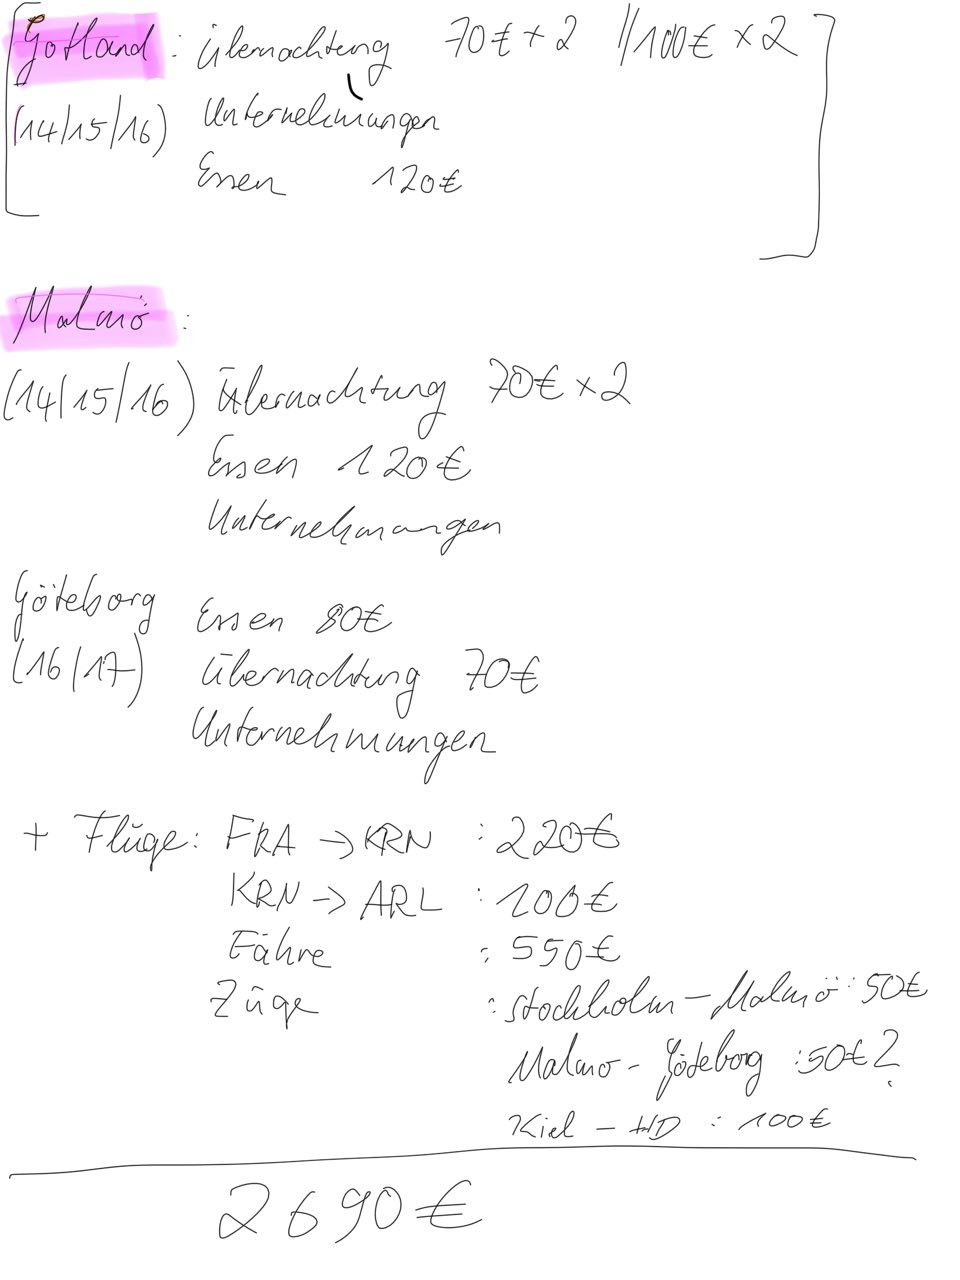 Gotland: Übernachtung 70€ + 2 //100€ × 2
(14/15/16) Unternehmungen
Essen 120€
Malmö:
(14/15/16) Übernachtung 70€ × 2
Essen 120€
Unternehmungen
Göteborg Essen 80€
(16/17) Übernachtung 70€
Unternehmungen
+ Flüge: FRA → KRN : 220€
KRN → ARL : 100€
Fähre : 550€
Züge : Stockholm – Malmö : 50€
Malmö - Göteborg : 50€?
Kiel – HD : 100€
2690€